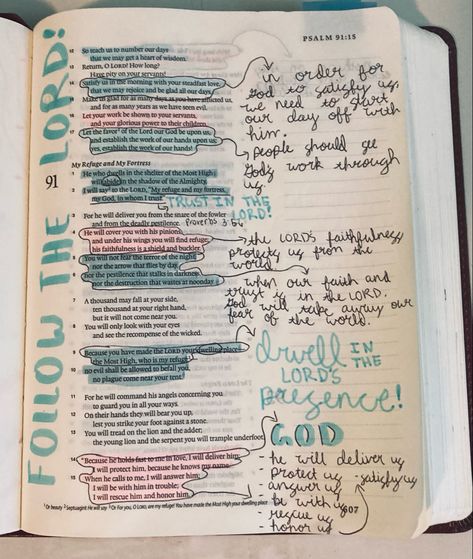 PSALM 91:15
FOLLOW THE LORD!
12 So teach us to number our days
that we may get a heart of wisdom.
13 Return, O LORD! How long?
Have pity on your servants!
14 Satisfy us in the morning with your steadfast love,
that we may rejoice and be glad all our days.
Make us glad for as many days as you have afflicted us,
and for as many years as we have seen evil.
Let your work be shown to your servants,
and your glorious power to their children.
Let the favor of the Lord our God be upon us,
and establish the work of our hands upon us;
yes, establish the work of our hands!
in order for
God to satisfy us,
we need to start
our day off with
him.
people should see
God's work through
us.
My Refuge and My Fortress
91
He who dwells in the shelter of the Most High
will abide in the shadow of the Almighty.
2 I will say to the LORD, "My refuge and my fortress,
my God, in whom I trust."
TRUST IN THE
LORD!
3 For he will deliver you from the snare of the fowler
and from the deadly pestilence.
Proverbs 3:5-6
He will cover you with his pinions,
and under his wings you will find refuge;
his faithfulness is a shield and buckler.
You will not fear the terror of the night,
nor the arrow that flies by day,
6 nor the pestilence that stalks in darkness,
nor the destruction that wastes at noonday.
the LORD'S faithfulness
protects us from the
world.
when our faith and
trust is in the LORD,
God will take away our
fear of the world.
7 A thousand may fall at your side,
ten thousand at your right hand,
but it will not come near you.
8 You will only look with your eyes
and see the recompense of the wicked.
Because you have made the LORD your dwelling place
the Most High, who is my refuge
10 no evil shall be allowed to befall you,
no plague come near your tent.
dwell IN
THE
LORD'S
presence!
11 For he will command his angels concerning you
to guard you in all your ways.
12 On their hands they will bear you up,
lest you strike your foot against a stone.
13 You will tread on the lion and the adder;
the young lion and the serpent you will trample underfoot.
14 "Because he holds fast to me in love, I will deliver him;
I will protect him, because he knows my name.
15 When he calls to me, I will answer him;
I will be with him in trouble;
I will rescue him and honor him.
GOD
- he will deliver us
protect us - satisfy us
- answer us
- be with us
- rescue us
- honor us
607
Or beauty 2 Septuagint He will say 3 Or For you, O LORD, are my refuge! You have made the Most High your dwelling place